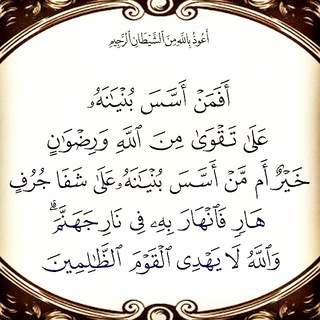 أَعُوذُ بِاللَّهِ مِنَ ٱلشَّيْطَانِ ٱلرَّجِيمِ
أَفَمَنْ أَسَّسَ بُنْيَـٰنَهُۥ
عَلَىٰ تَقْوَىٰ مِنَ ٱللَّهِ وَرِضْوَٰنٍ
خَيْرٌ أَم مَّنْ أَسَّسَ بُنْيَـٰنَهُۥ عَلَىٰ شَفَا جُرُفٍ
هَارٍ فَٱنْهَارَ بِهِۦ فِى نَارِ جَهَنَّمَ ۗ
وَٱللَّهُ لَا يَهْدِى ٱلْقَوْمَ ٱلظَّـٰلِمِينَ